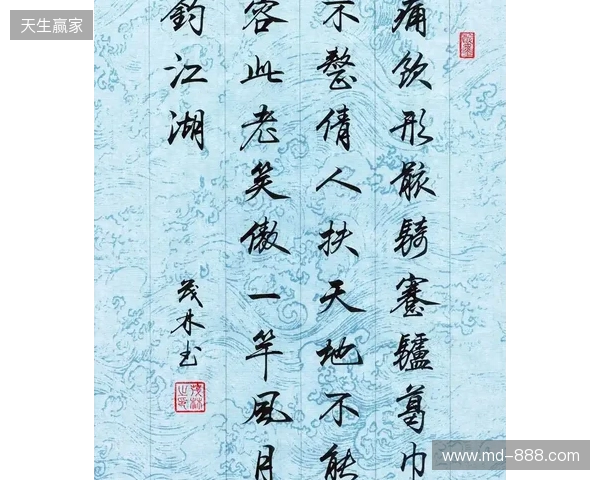 天生赢家
痛飲形骸騎蹇驢葛巾
不整倩人扶天地不能
容此老笑傲一竿風月
釣江湖
茂林书
www.md-888.com